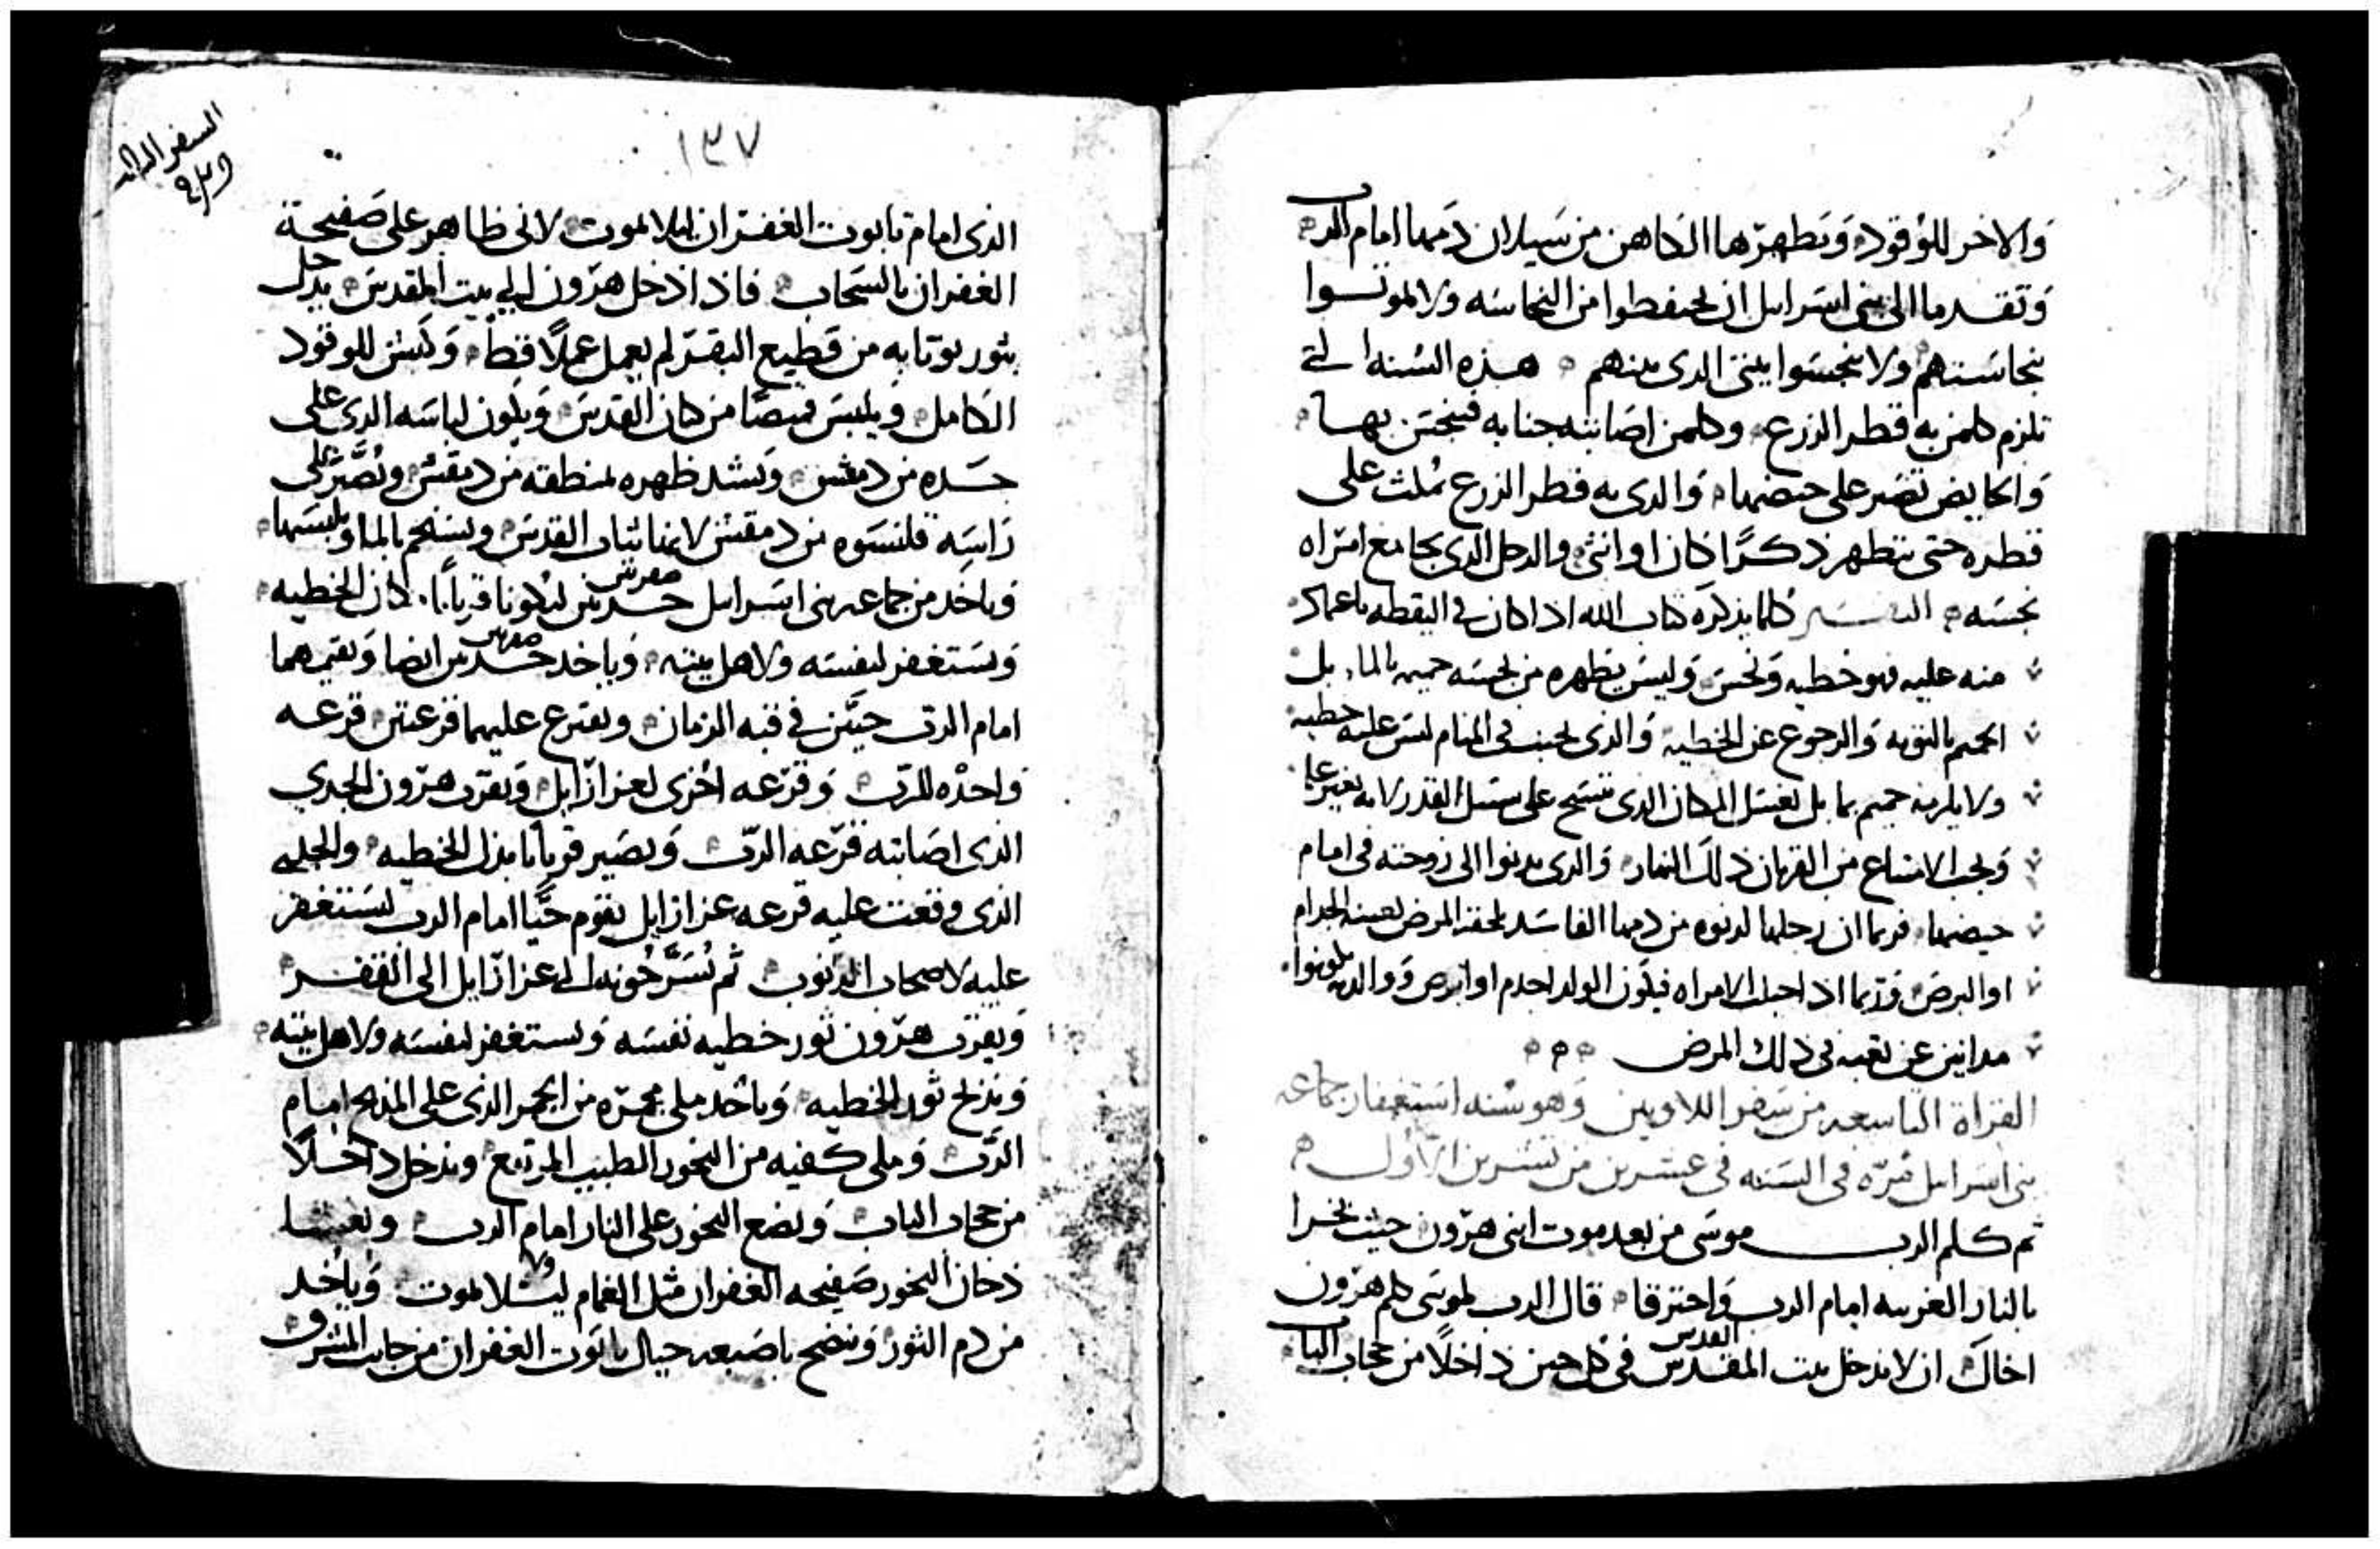 والاخر للوقود وتطهرها الكاهن من سيلان دمها امام الرب
وتقدما الى بني اسرايل ان يحتفظوا من النجاسه ولا يموتوا
بنجاستهم ولا ينجسوا بيتي الدي بينهم هذه السنه التي
تلزم كلمن به قطر الزرع وكلمن اصابته جنابه فينجس بها
والحايض تصبر على حيضها والدي به قطر الزرع يمكث على
قطره حتى يتطهر ذكرًا كان او انثى والرجل الدي يجامع امراه
نجسه التفسير كلما يذكره كتاب الله اذا كان في اليقظه
منه عليه فهو خطيه ونجس وليس يطهره من نجسه حميم بالما بل
الحميم بالتوبه والرجوع عن الخطيه والذي يجنب في المنام ليس عليه خطيه
ولا يلزمه حميم بما بل يغسل المكان الذي يتسخ على سبيل القذر لانه بغير
ويجب الامتناع من القربان ذلك النهار والدي يدنوا الى زوجته في ايام
حيضها فربما ان رجلها لدنوه من دمها الفاسد يلحقه المرض بعينه الجدام
او البرص وربما اذا حبلت الامراه فيكون الولد اجدم او ابرص ووالديه يكونوا
مدانين عن تعبه في ذلك المرض
القراة التاسعه من سفر اللاويين وهو سنه استغفار جماعه
بني اسرايل مره في السنه في عشرين من تشرين الاول
ثم كلم الرب موسى من بعد موت ابني هرون حيث بخرا
بالنار الغريبه امام الرب واحترقا قال الرب لموسى كلم هرون
اخاك ان لا يدخل بيت المقدس القدس في كل حين داخلًا من حجاب الباب
السفر الثالث
١٣٧
الذي امام تابوت الغفران ليلا يموت لاني ظاهر على صفيحة
الغفران بالسحاب فاذا دخل هرون الى بيت المقدس يدخل
بثور يوتا به من قطيع البقر لم يعمل عملًا قط وكبش للوقود
الكامل ويلبس قميصًا من كتان القدس ويكون لباسه الدي على
جسده من دمقس ويشد ظهره بمنطقه من دمقس ويصير على
راسه قلنسوه من دمقس لانها ثياب القدس ويستحم بالما ويلبسها
وياخد من جماعه بني اسرايل جديين ليكونا قربانًا كان الخطيه
ويستغفر لنفسه ولاهل بيته وياخد جديين ايضا ويقيمهما
امام الرب حيّين في قبه الزمان ويقترع عليهما قرعتين قرعه
واحده للرب وقرعه اخرى لعزازايل ويقرب هرون الجدي
الذي اصابته قرعه الرب ويصير قربانا بذل الخطيه والجدي
الذي وقعت عليه قرعه عزازايل يقوم حيًا امام الرب ليستغفر
عليه لاصحاب الذنوب ثم يسرحونه الى عزازايل الى القفر
ويقرب هرون ثور خطيه نفسه ويستغفر لنفسه ولاهل بيته
ويذبح ثور الخطيه وياخد ملى مجمره من الجمر الذي على المذبح امام
الرب وملى كفيه من البخور الطيب المرتفع ويدخل داخلًا
من حجاب الباب ويضع البخور على النار امام الرب ويغشا
دخان البخور صفيحه الغفران مثل الغمام ليلا يموت وياخد
من دم الثور وينضح باصبعه حيال تابوت الغفران من جانب المشرق